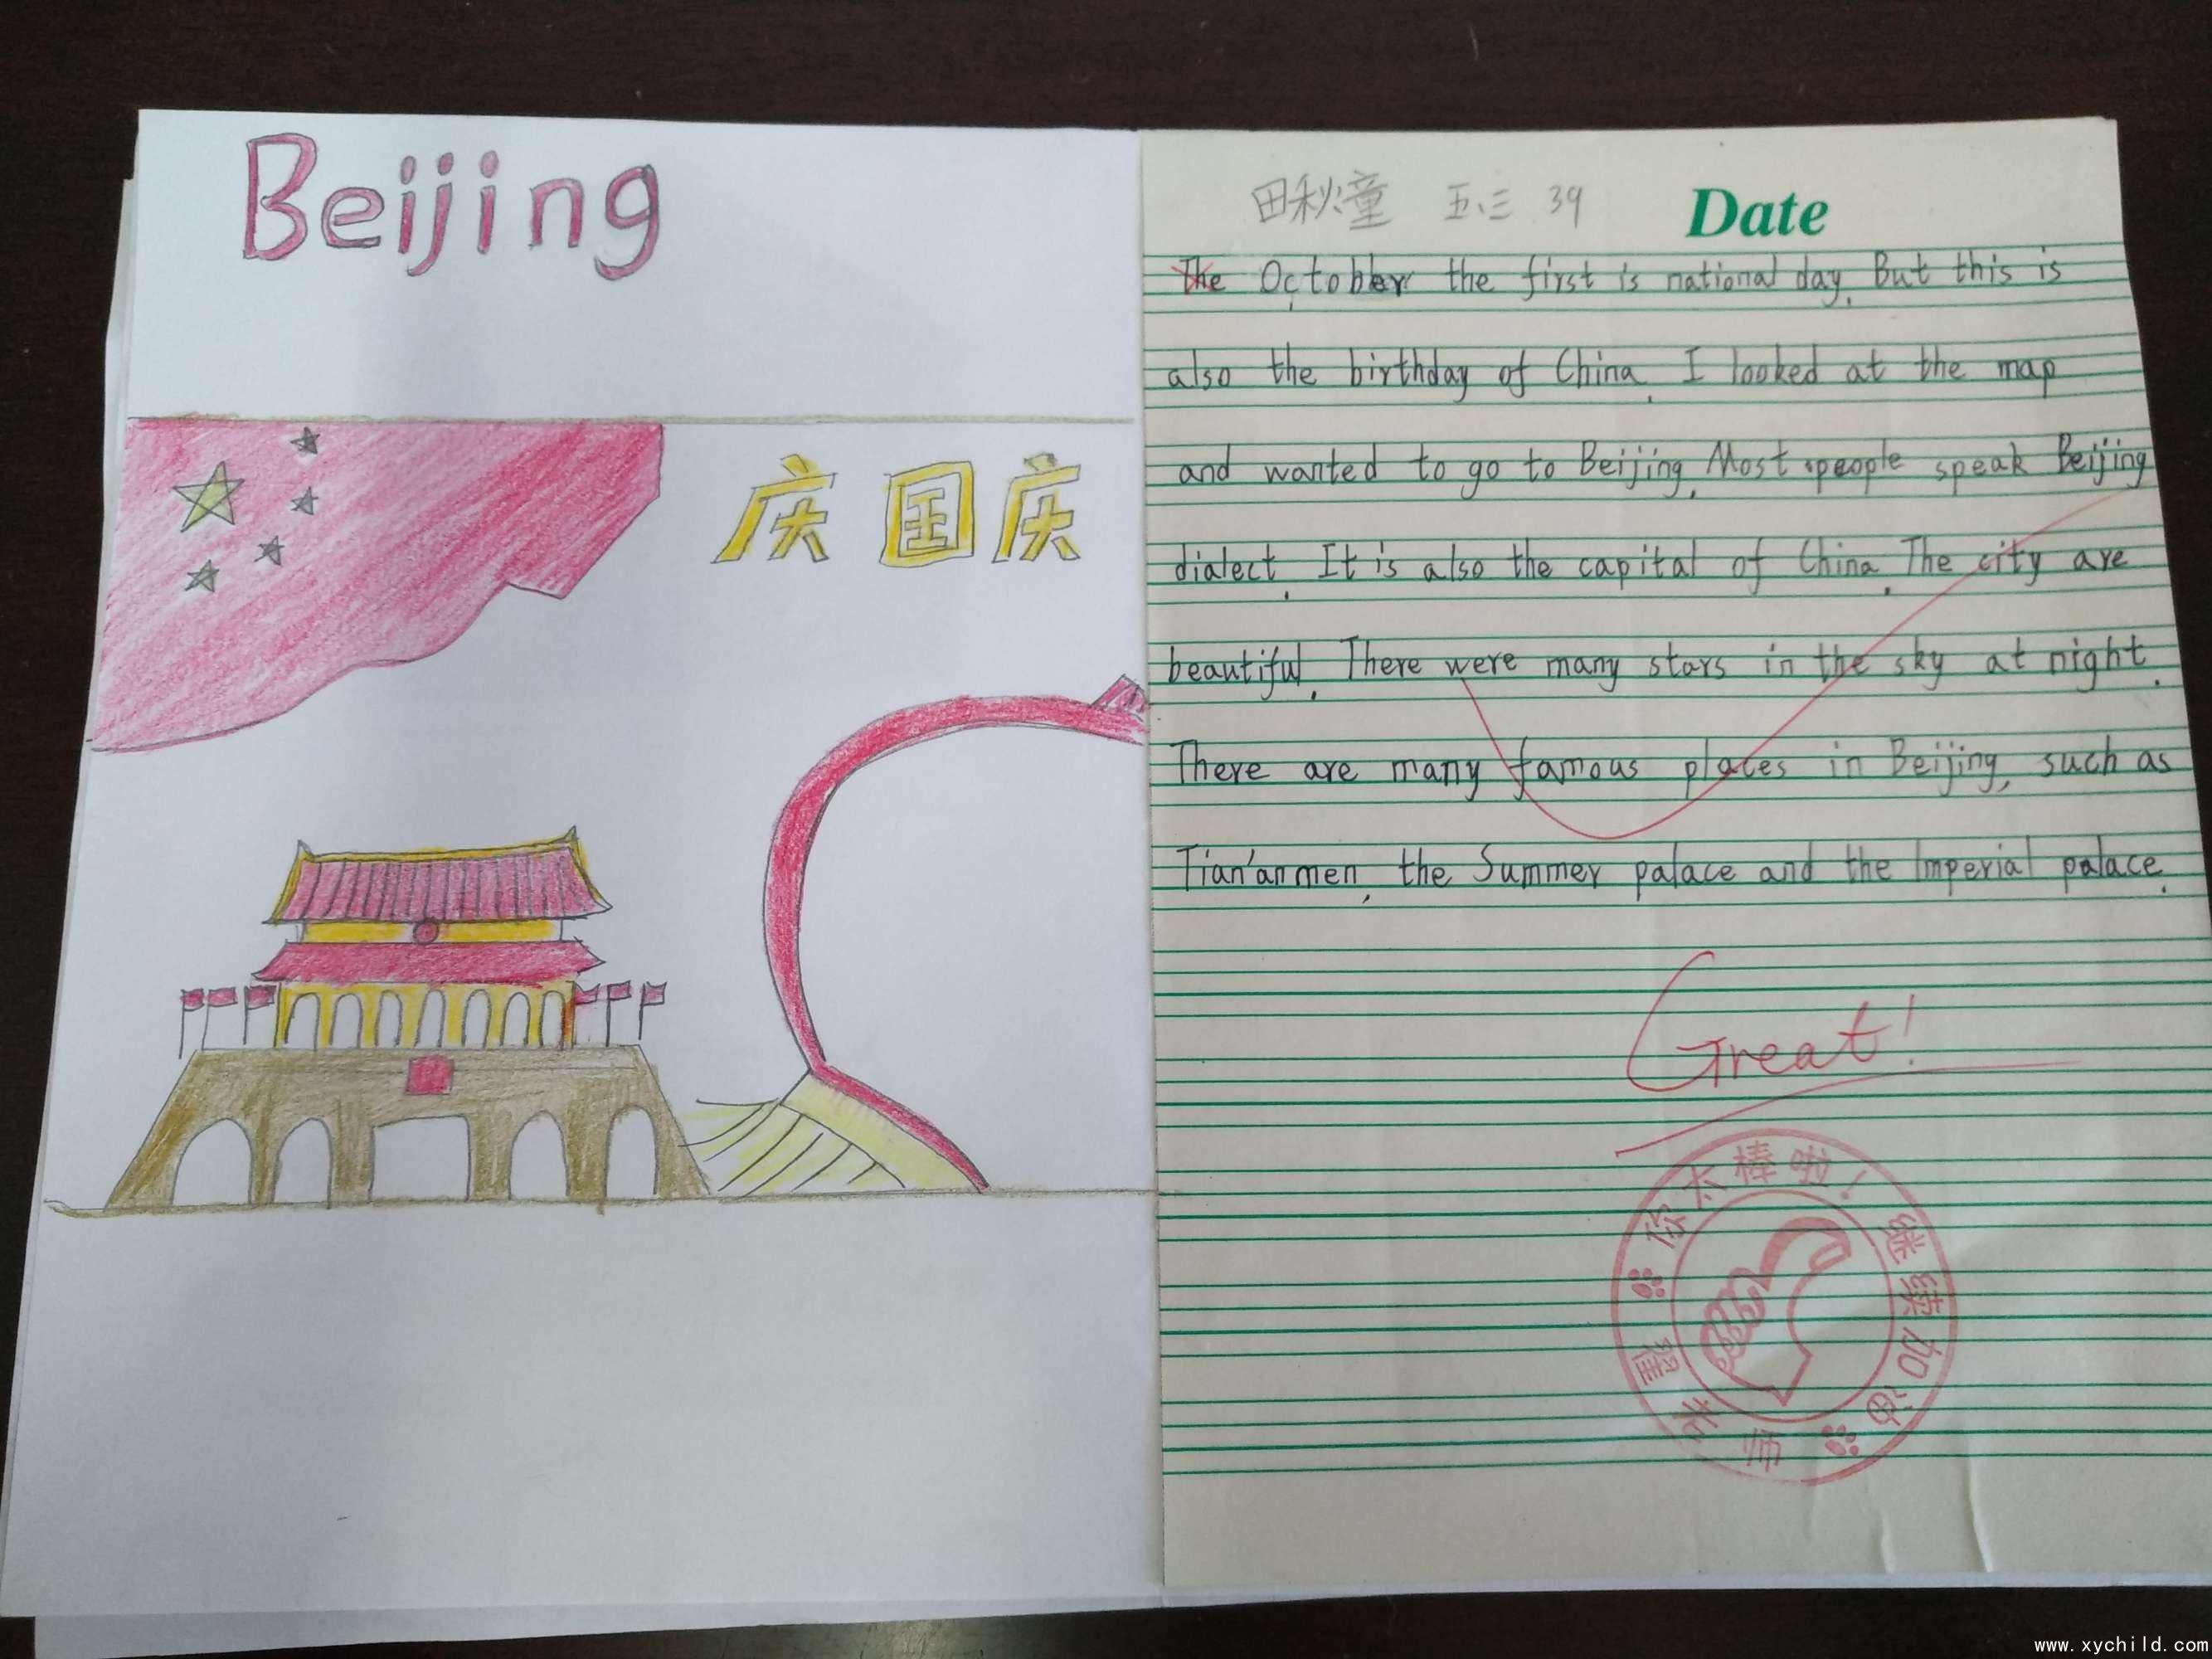 Beijing
庆国庆
田秋童 五.三 39
Date
The October the first is national day. But this is
also the birthday of China. I looked at the map
and wanted to go to Beijing. Most people speak Beijing
dialect. It is also the capital of China. The city are
beautiful. There were many stars in the sky at night.
There are many famous places in Beijing, such as
Tian'anmen, the Summer palace and the Imperial palace.
Great!
你太棒啦！继续加油
翟老师
www.xychild.com